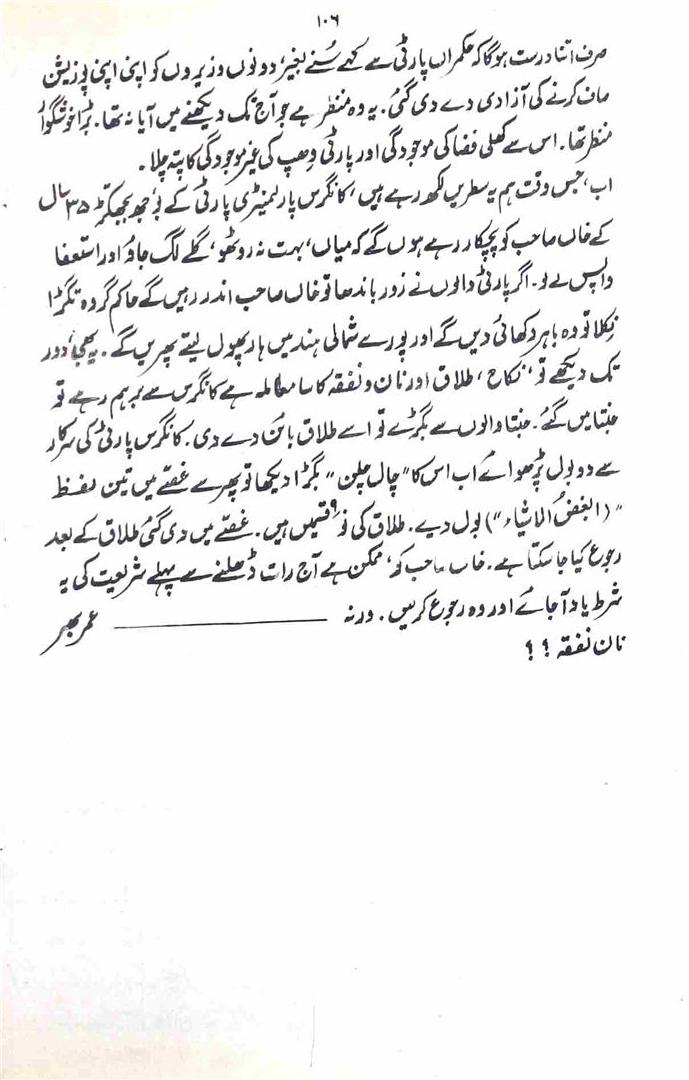 ۱۰۶
صرف اتنا درست ہوگا کہ حکمراں پارٹی سے کہے سُنے بغیر، دونوں وزیروں کو اپنی اپنی پوزیشن
صاف کرنے کی آزادی دے دی گئی۔ یہ وہ منظر ہے جو آج تک دیکھنے میں آیا نہ تھا۔ بڑا خوشگوار
منظر تھا۔ اس سے کھلی فضا کی موجودگی اور پارٹی وِھپ کی غیر موجودگی کا پتہ چلا۔
اب، جس وقت ہم یہ سطریں لکھ رہے ہیں، کانگرس پارلمینٹری پارٹی کے بُوجھ بجھکڑ ۳۵ سال
کے خاں صاحب کو پچکار رہے ہوں گے کہ میاں، بہت نہ روٹھو، گلے لگ جاؤ اور استعفا
واپس لے لو۔ اگر پارٹی والوں نے زور باندھا تو خاں صاحب اندر رہیں گے حاکم گروہ تگڑا
نِکلا تو وہ باہر دکھائی دیں گے اور پورے شمالی ہند میں ہار پھول لیتے پھریں گے۔ یہ بھی، دور
تک دیکھیے تو، نکاح، طلاق اور نان و نفقہ کا سا معاملہ ہے کانگرس سے برہم رہے تو
جنتا میں گئے۔ جنتا والوں سے بگڑے تو اسے طلاق بائن دے دی۔ کانگرس پارٹی کی سرکار
سے دو بول پڑھوائے اب اس کا "چال چلن" بگڑا دیکھا تو پھر سے غصّے میں تین لفظ
"(ابغضُ الاشیاء") بول دیے۔ طلاق کی نو ۹ قسمیں ہیں۔ غصّے میں دی گئی طلاق کے بعد
رجوع کیا جا سکتا ہے۔ خاں صاحب کو، ممکن ہے آج رات ڈھلنے سے پہلے شریعت کی یہ
شرط یاد آجائے اور وہ رجوع کریں۔ ورنہ ــــــــــــــــ عمر بھر
نان نفقہ ؟ ؟